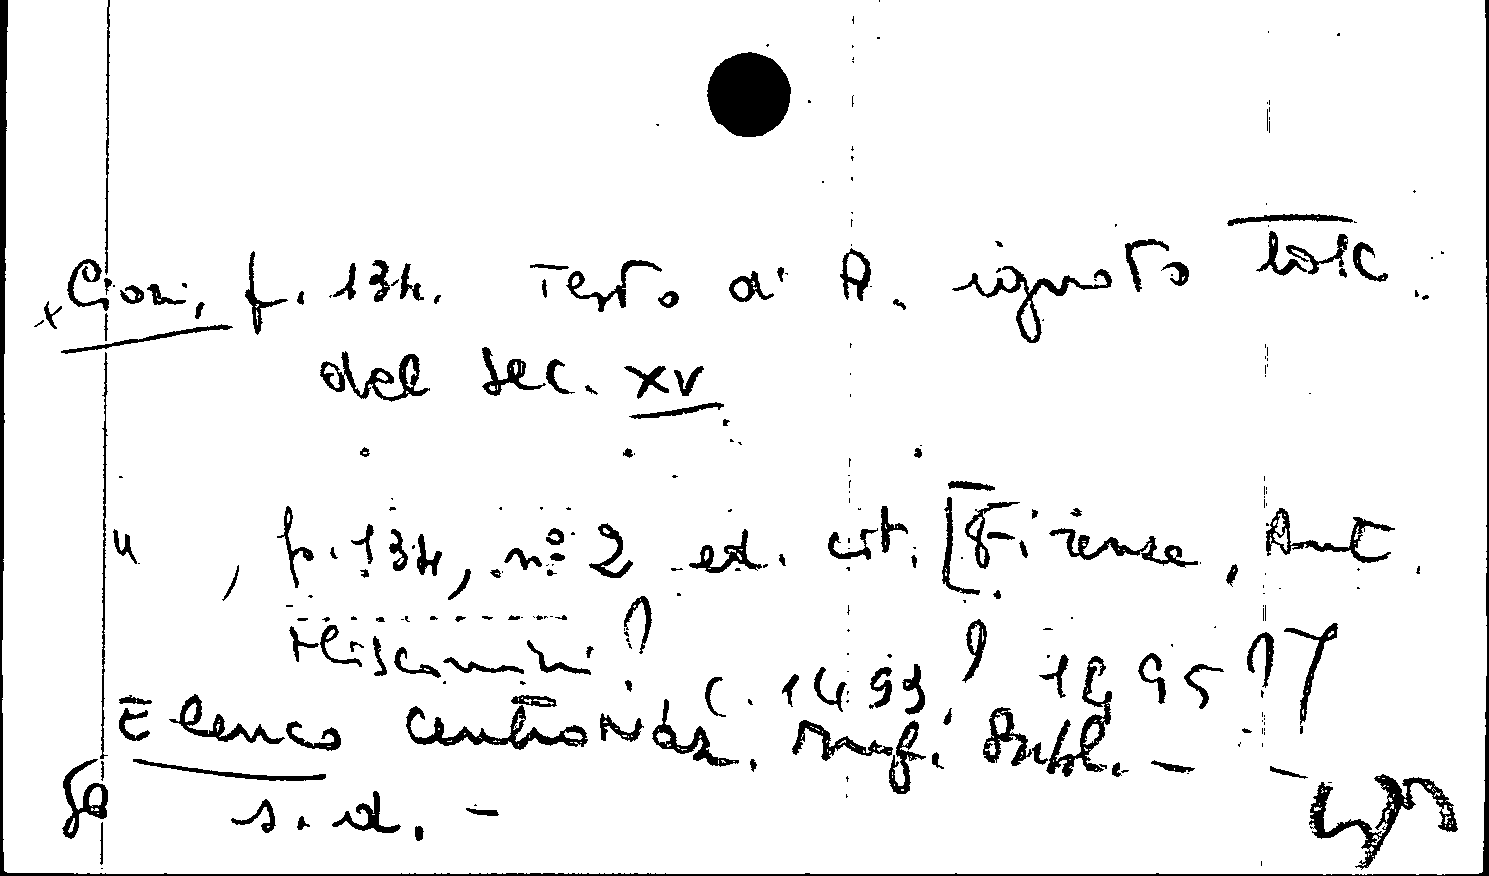 Cioni, p. 134. Testo d'A. ignoto tosc.
del sec. XV.
" , p. 134, n° 2 ed. cit. [Firenze, Ant.
Miscomini? c. 1493? 1495?]
Elenco Centro Naz. Inf. Bibl. -
s.d. -